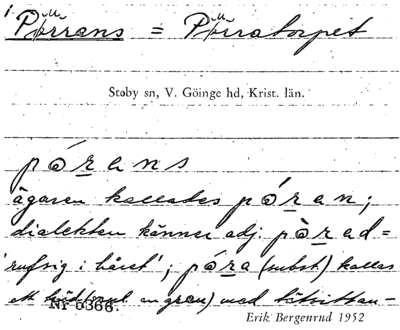 1. Pörrans = Pörratorpet
Stoby sn, V. Göinge hd, Krist. län.
pórans
ägaren kallades póran;
dialekten känner adj. pòrad=
'rufsig i håret'; póra (subst.) kallas
ett gran) med tätsittan-
Nr 5366.
Erik Bergenrud 1952